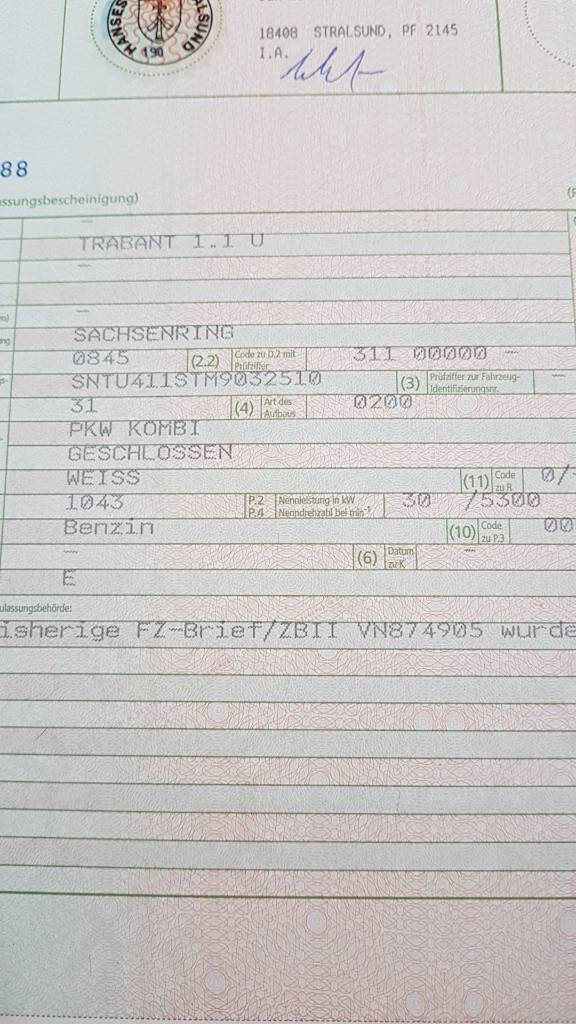 HANSES
ALSUND
190
18408 STRALSUND, PF 2145
I.A.
88
assungsbescheinigung)
TRABANT 1.1 U
SACHSENRING
0845 (2.2) Code zu D.2 mit Prüfziffer 311 00000 —
SNTU411STM9032510 (3) Prüfziffer zur Fahrzeug-Identifizierungsnr. —
31 (4) Art des Aufbaus 0200
PKW KOMBI
GESCHLOSSEN
WEISS (11) Code zu R 0/
1043 P.2 P.4 Nennleistung in kW Nenndrehzahl bei min⁻¹ 30 /5300
Benzin (10) Code zu P.3 00
— (6) Datum zu K —
E
ulassungsbehörde:
isherige FZ-Brief/ZBII VN874905 wurde